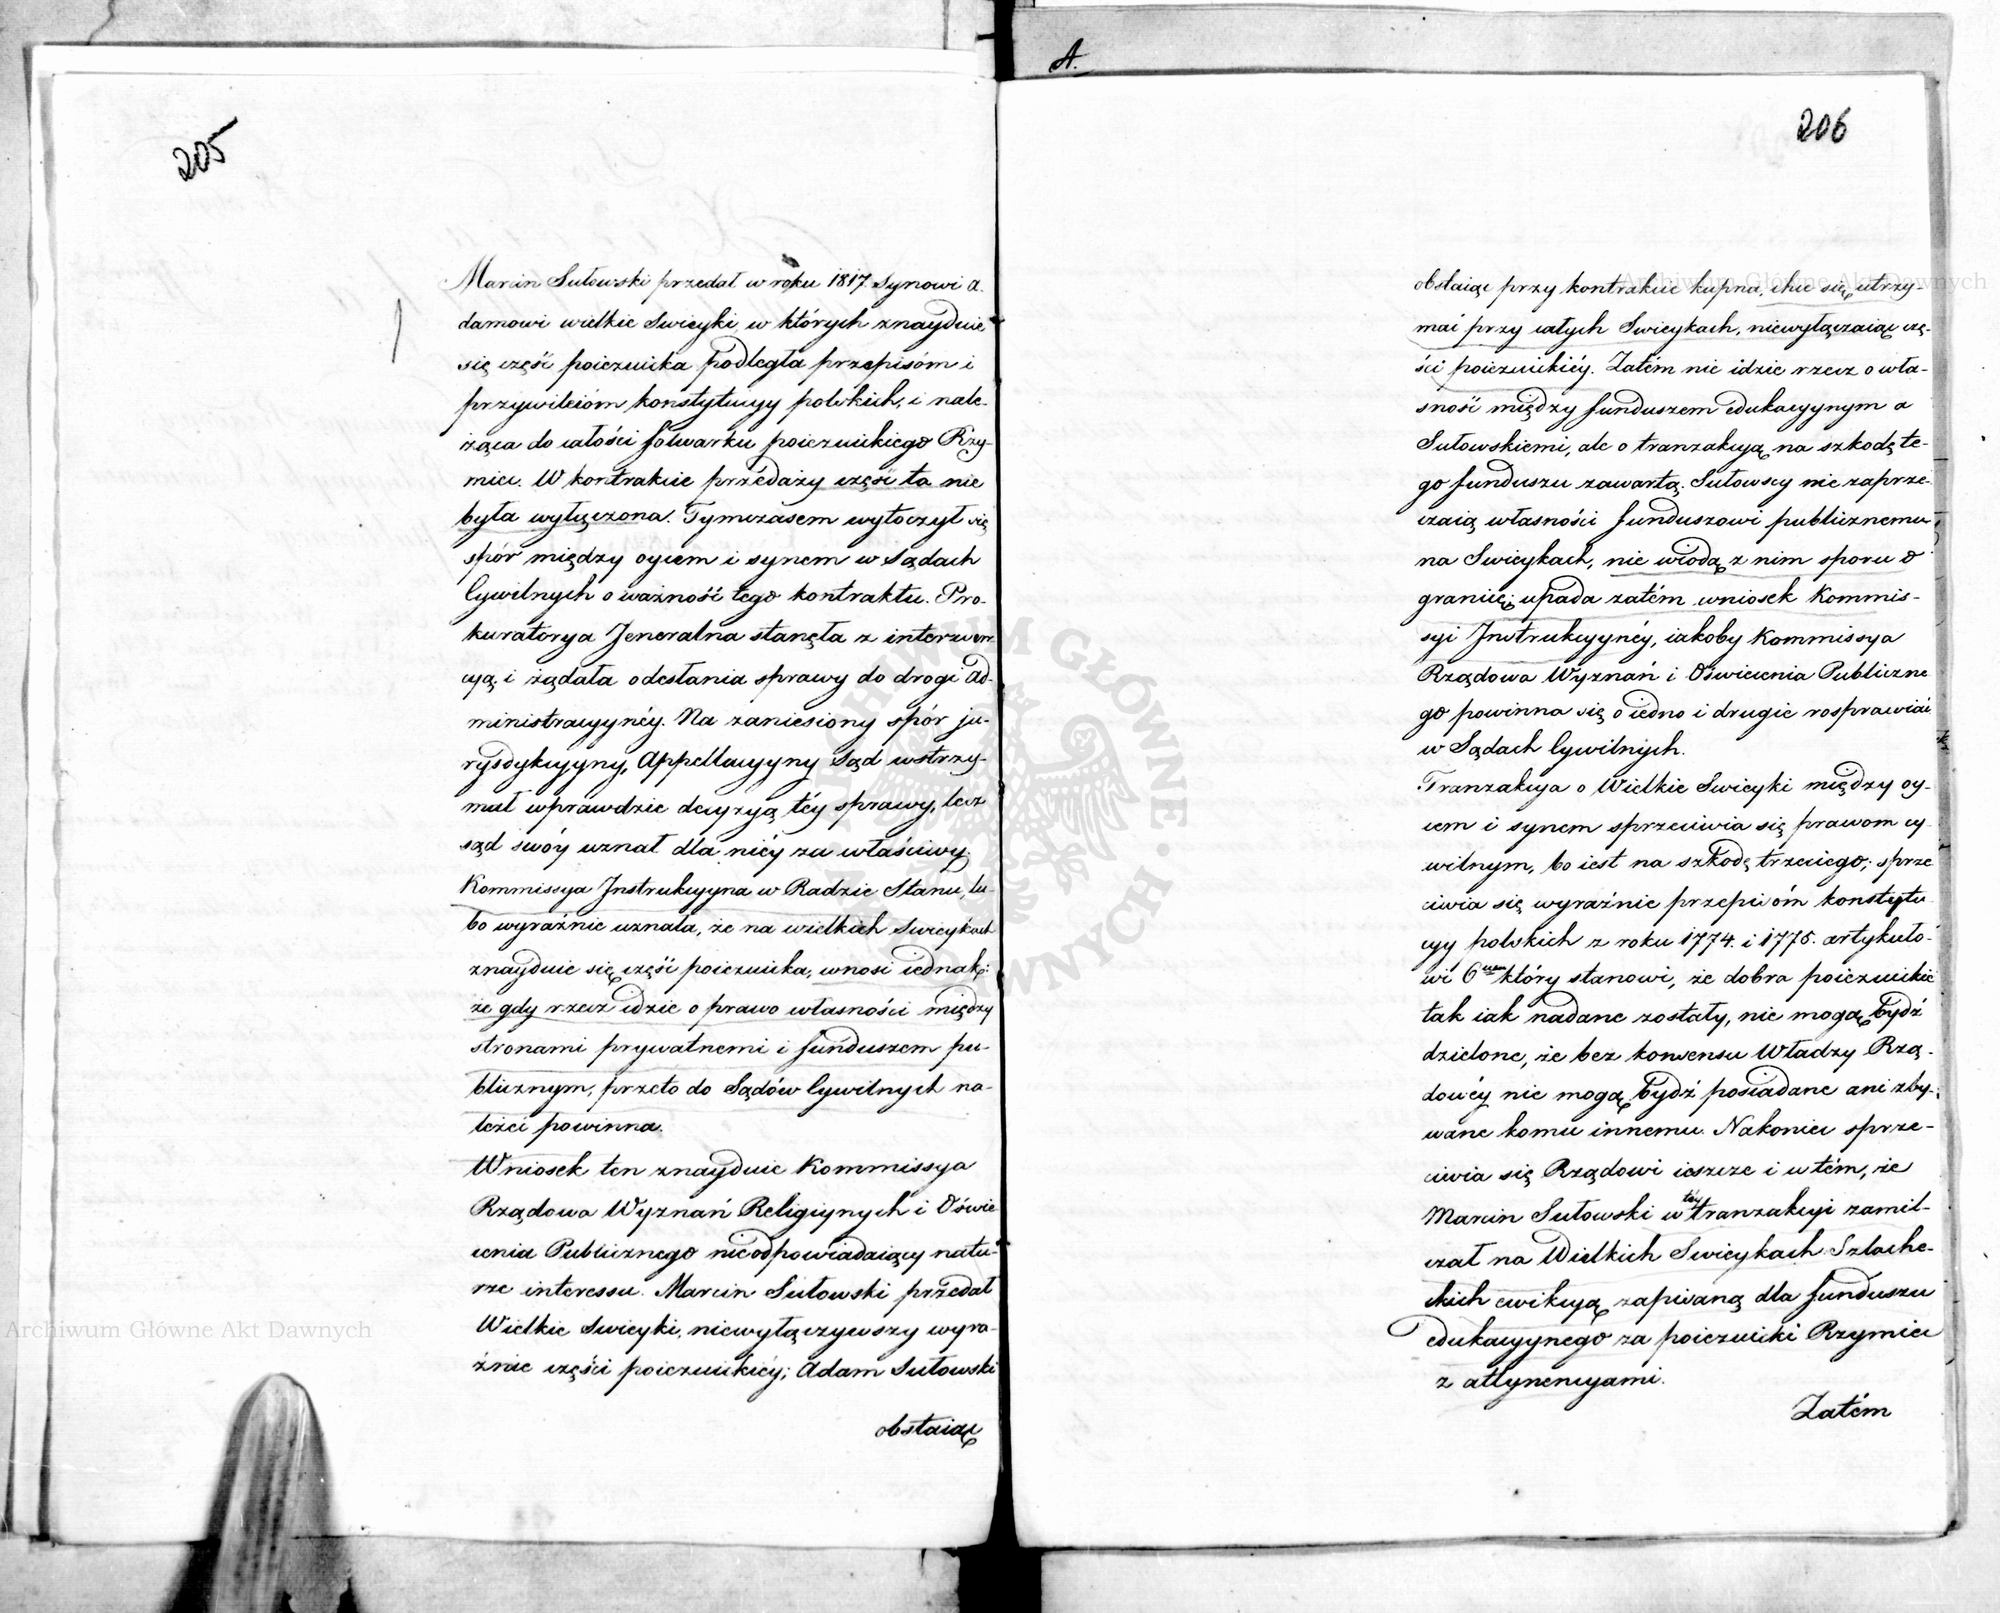 205
Marcin Sułowski przedał w roku 1817. Synowi A-
damowi wielkie Swicyki, w których znayduie
się część poiezuicka podległa przepisóm i
przywileióm konstytucyy polskich, i nale-
żąca do całości folwarku poiezuickiego Rzy-
miec. W kontrakcie przedaży część ta nie
była wyłączona. Tymczasem wytoczył się
spór między oycem i synem w Sądach
Cywilnych o ważność tego kontraktu. Pro-
kuratorya Jeneralna stanęła z interwen
cyą i żądała odesłania sprawy do drogi Ad-
ministracyynéy. Na zaniesiony spór ju-
rysdykcyyny, Appellacyyny Sąd wstrzy-
mał wprawdzie decyzyą téy sprawy, lecz
sąd swóy uznał dla niéy za właściwy.
Kommissya Instrukcyyna w Radzie Stanu, lu-
bo wyraźnie uznała, że na wielkich Swicykach
znayduie się część poiezuicka, wnosi iednak:
że gdy rzecz idzie o prawo własności między
stronami prywatnemi i funduszem pu-
blicznym, przeto do Sądów Cywilnych na-
leżeć powinna.
Wniosek ten znayduie Kommissya
Rządowa Wyznań Religiynych i Oświe
cenia Publicznego nieodpowiadaiący natu-
rze interessu. Marcin Sułowski przedał
Wielkie Swicyki, niewyłączywszy wyra-
źnie części poiezuickiéy; Adam Sułowski
obstaiąc
A.
206
obstaiąc przy kontrakcie kupna, chce się utrzy-
mać przy całych Swicykach, niewyłączaiąc czę-
ści poiezuickiéy. Zatém nie idzie rzecz o wła-
sność między funduszem edukacyynym a
Sułowskiemi, ale o tranzakcyą na szkodę te-
go funduszu zawartą. Sułowscy nie zaprze-
czaią własności funduszowi publicznemu
na Swicykach, nie wiodą z nim sporu o
granicę; upada zatém wniosek Kommis-
syi Instrukcyynéy, iakoby Kommissya
Rządowa Wyznań i Oświecenia Publiczne
go powinna się o iedno i drugie rosprawiać
w Sądach Cywilnych.
Tranzakcya o Wielkie Swicyki między oy-
cem i synem sprzeciwia się prawom cy-
wilnym, bo iest na szkodę trzeciego; sprze
ciwia się wyraźnie przepisóm konstytu
cyy polskich z roku 1774. i 1775. artykuło-
wi 6mu który stanowi, że dobra poiezuickie
tak iak nadane zostały, nie mogą bydź
dzielone, że bez konsensu Władzy Rzą-
dowéy nie mogą bydź posiadane ani zby-
wane komu innemu. Nakoniec sprze-
ciwia się Rządowi ieszcze i w tém, że
Marcin Sułowski w téy tranzakcyi zamil-
czał na Wielkich Swicykach Szlache-
ckich ewikcyą zapisaną dla funduszu
edukacyynego za poiezuicki Rzymiec
z attynencyami.
Zatém
Archiwum Główne Akt Dawnych